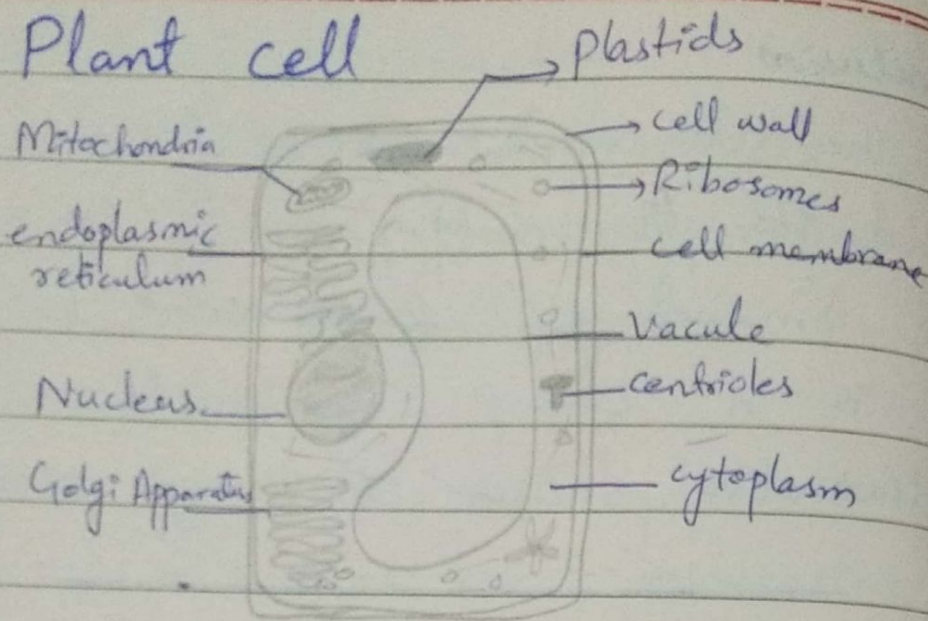 Plant cell
Plastids
Mitochondria
cell wall
Ribosomes
endoplasmic
reticulum
cell membrane
Vacule
Nucleus
centrioles
Golgi Apparatus
cytoplasm